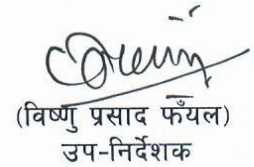 (विष्णु प्रसाद फँयल)
उप-निर्देशक